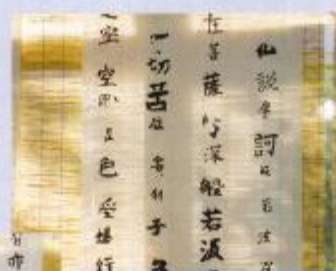 仏説摩訶般若波
在菩薩行深般若波
一切苦厄舎利子
空空即是色受想行
亦